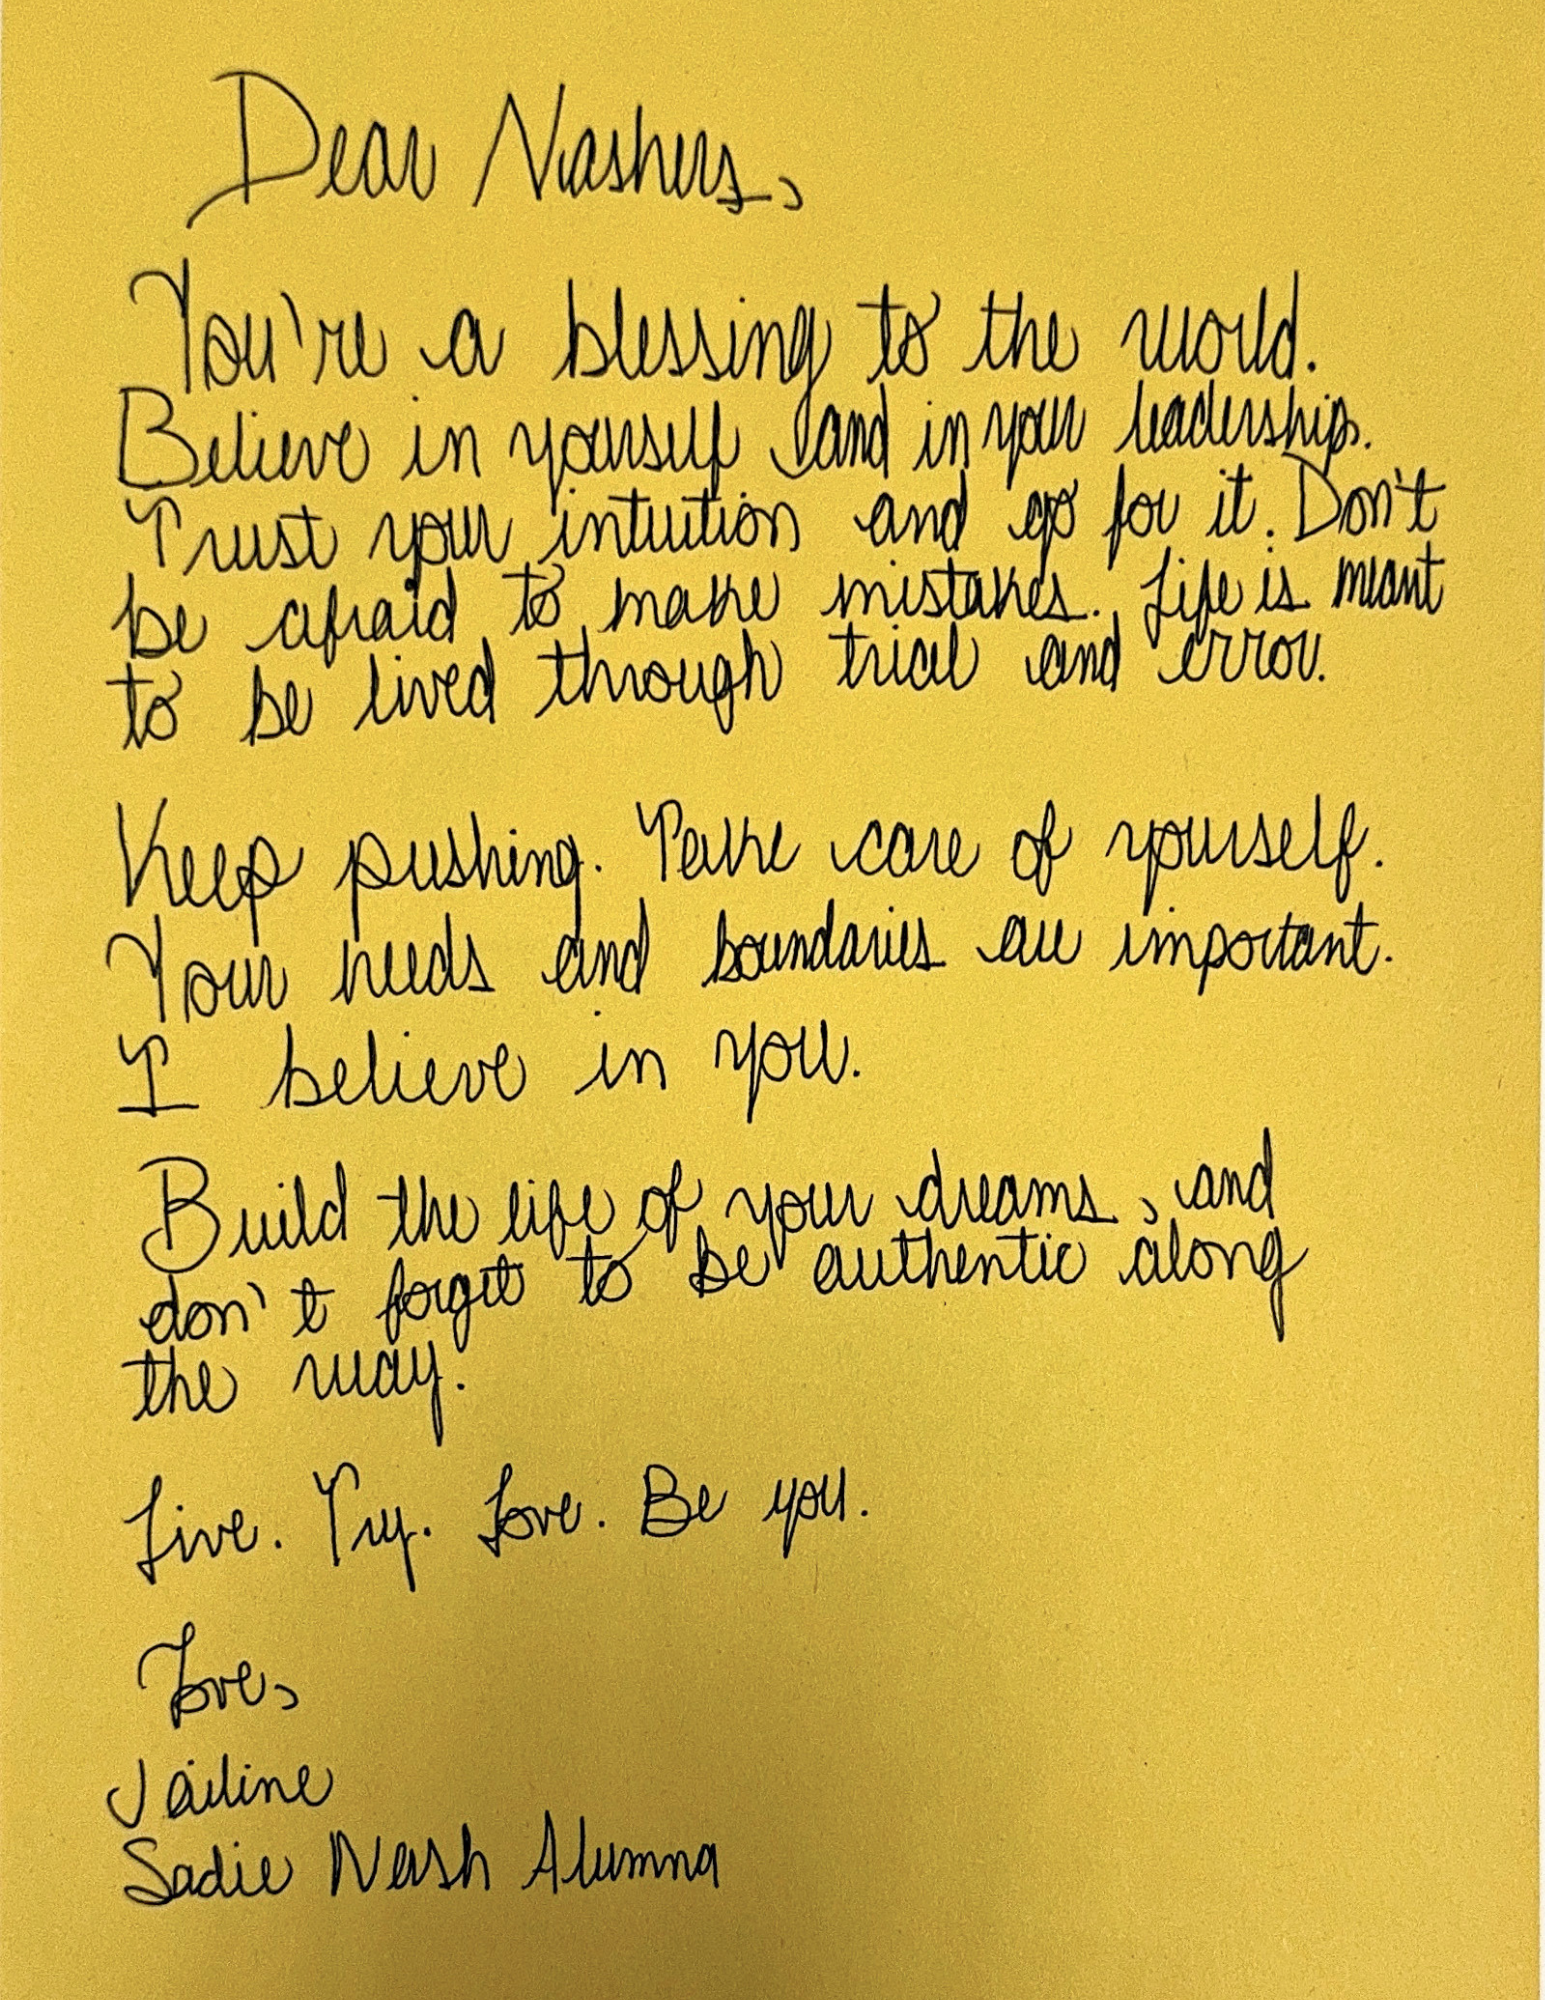 Dear Nashers,
You're a blessing to the world.
Believe in yourself and in your leadership.
Trust your intuition and go for it. Don't
be afraid to make mistakes. Life is meant
to be lived through trial and error.
Keep pushing. Take care of yourself.
Your needs and boundaries are important.
I believe in you.
Build the life of your dreams, and
don't forget to be authentic along
the way.
Live. Try. Love. Be you.
Love,
Jailine
Sadie Nash Alumna